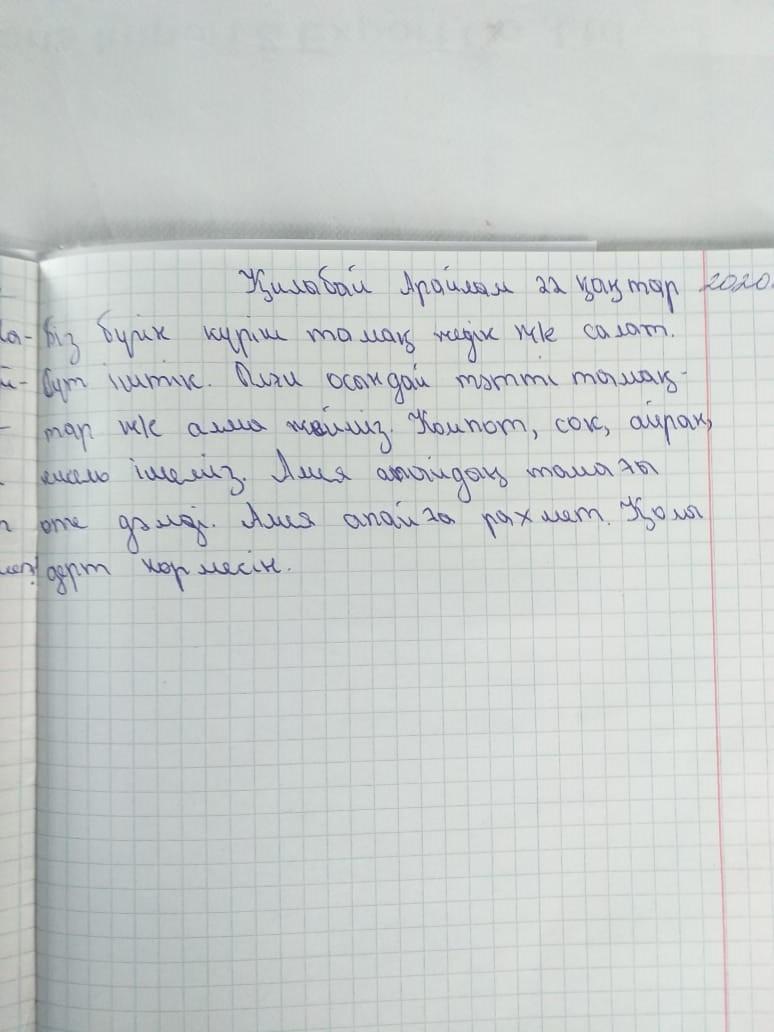 Қилыбай Арайлым 22 қаңтар 2020.
біз бүгін күріш тамақ жедік ж/е салат.
сут іштік. Олги осындай тәтті тамақ-
тар ж/е алма жейміз. Компот, сок, айран,
кисель ішеміз. Асия апайдың тамағы
өте дәмді. Асия апайға рахмет. Қолы
дерт көрмесін.